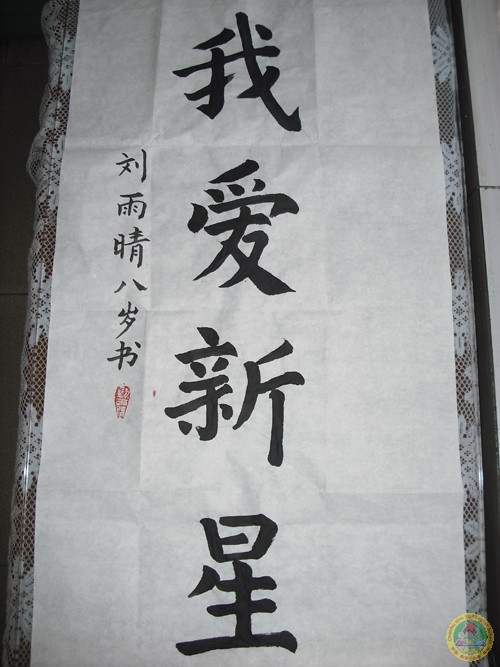 我爱新星
刘雨晴八岁书